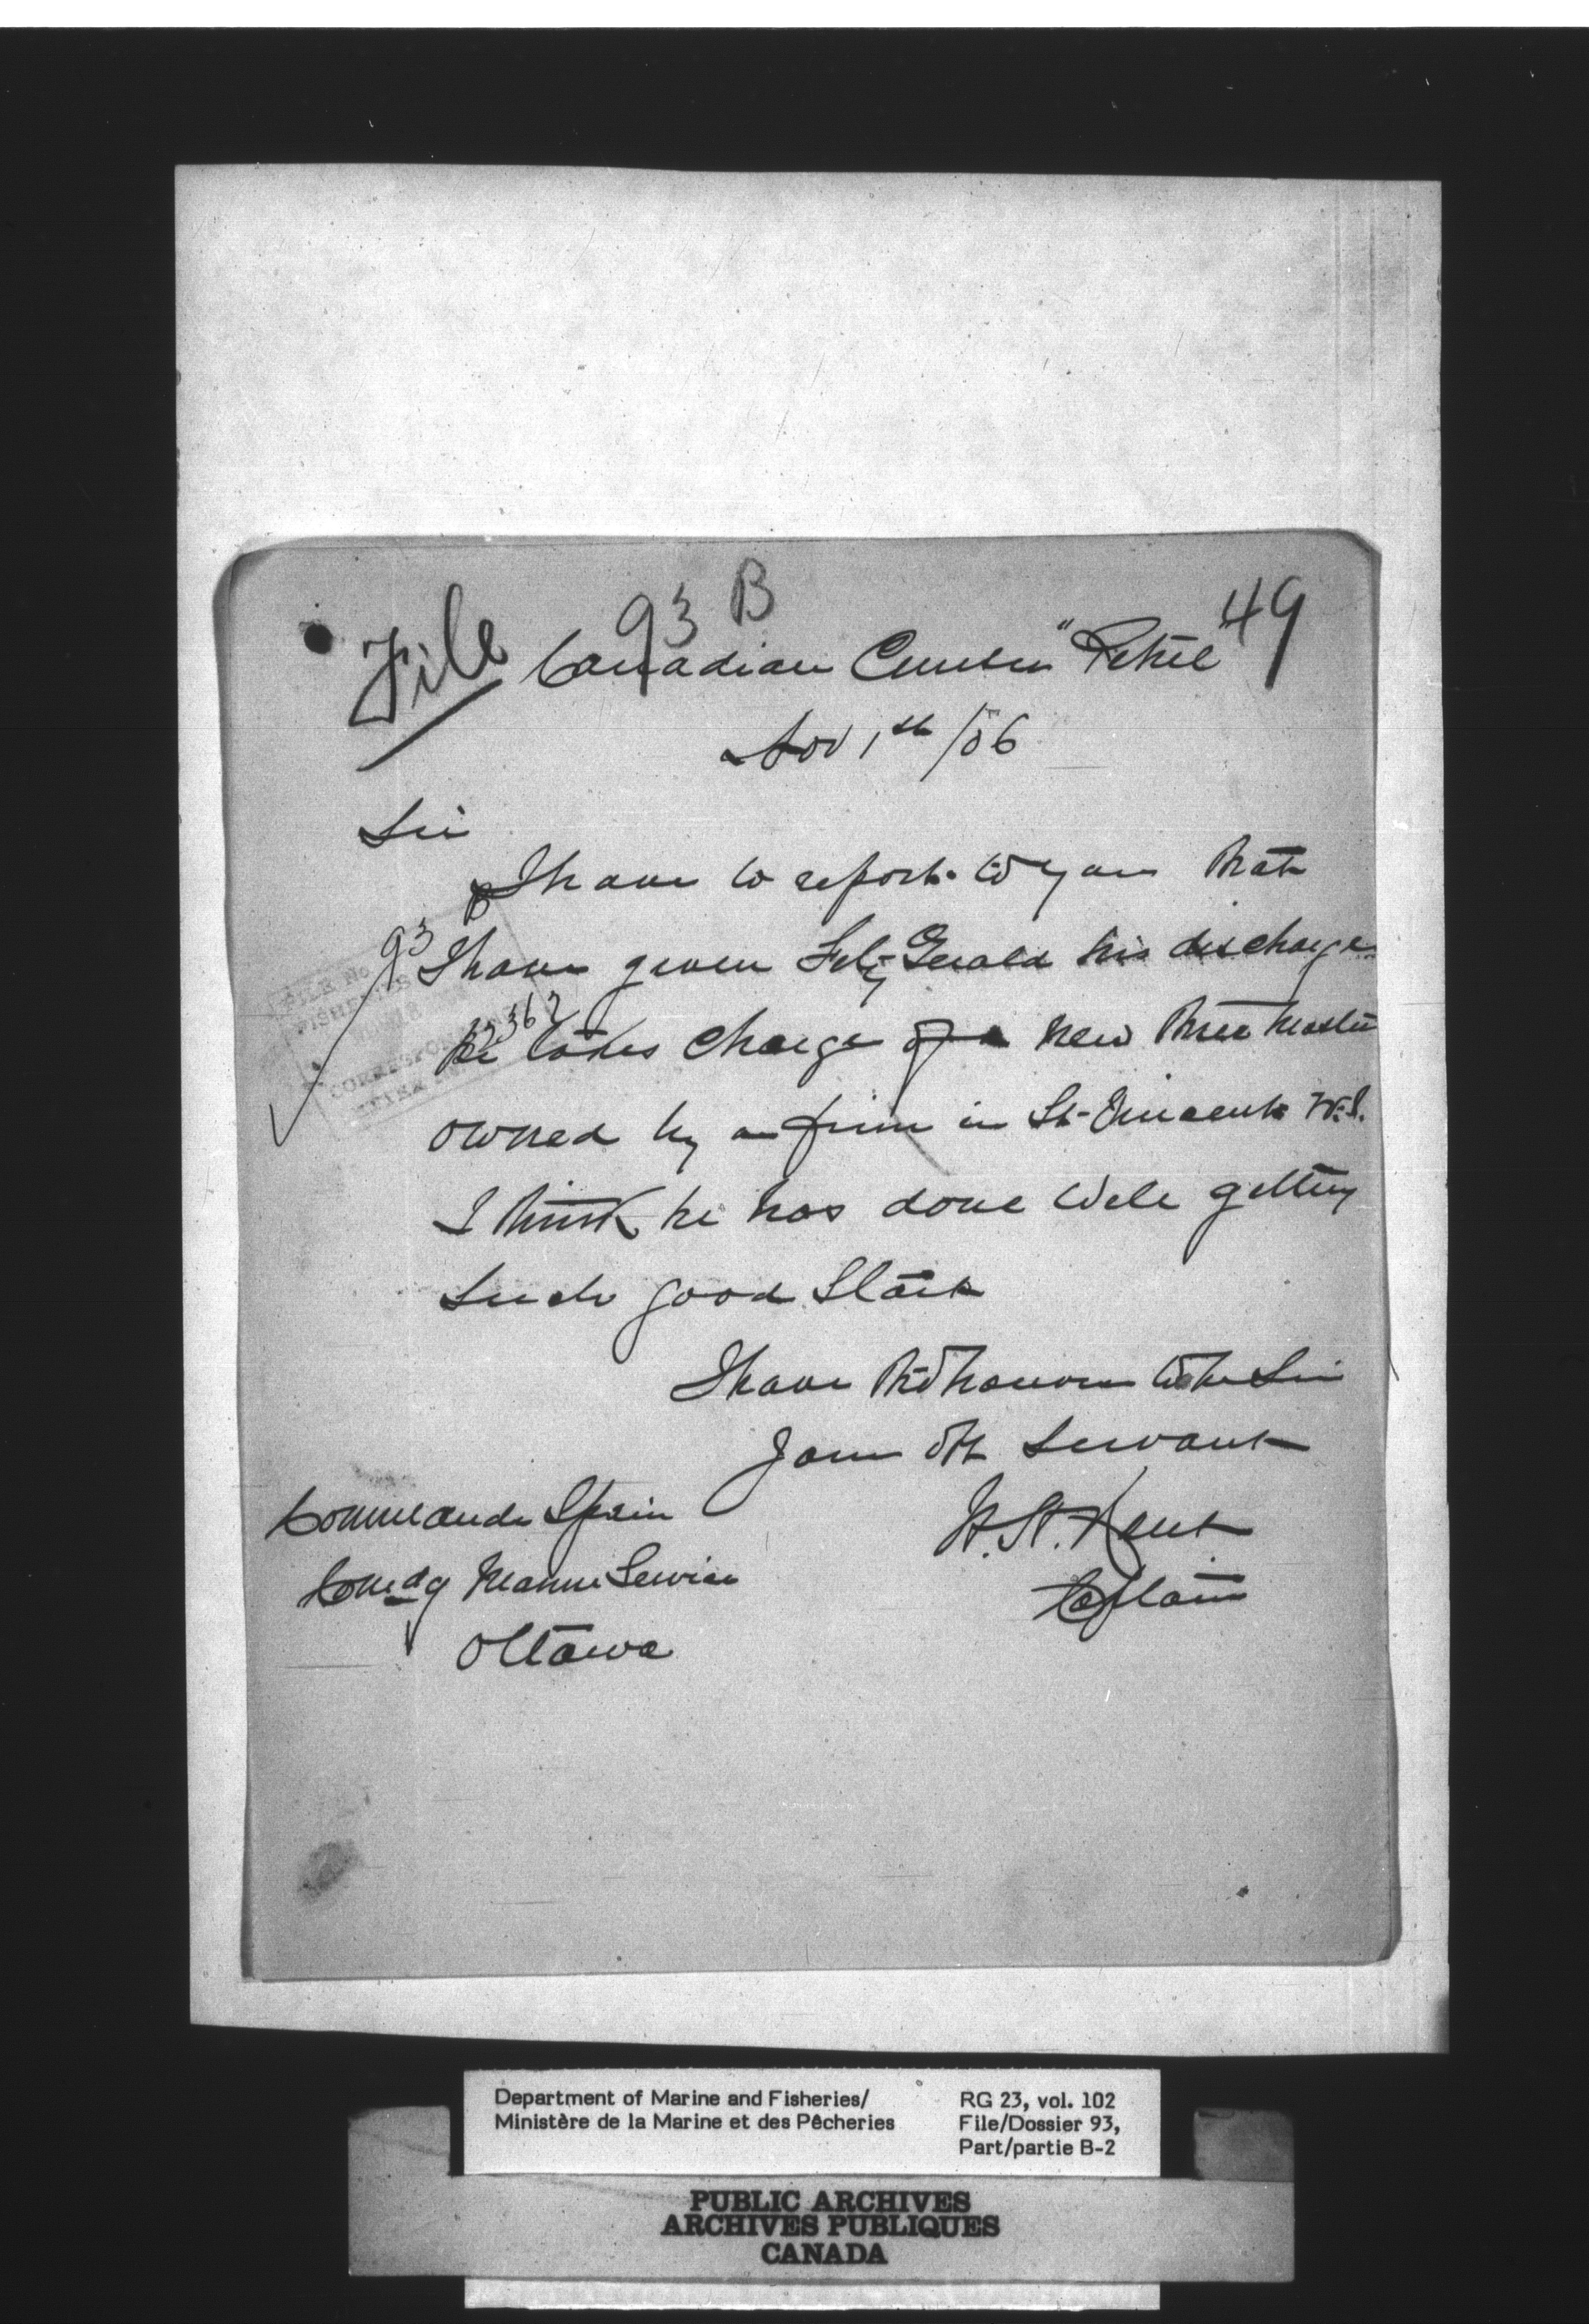 File
93 B
49
Canadian Cruiser "Petrel"
Nov 1st /06
Sir
I have to report to you that
93 B
I have given Fitz-Gerald his discharge
FILE No
FISHERIES
CORRESPON
he takes charge of a new three master
owned by a firm in St-Vincent W.I.
I think he has done well getting
such good start
I have the honour to be Sir
Your Obt Servant
Commander Spain
H. St. Kent
Comdg Marine Service
Captain
Ottawa
Department of Marine and Fisheries/
Ministère de la Marine et des Pêcheries
RG 23, vol. 102
File/Dossier 93,
Part/partie B-2
PUBLIC ARCHIVES
ARCHIVES PUBLIQUES
CANADA